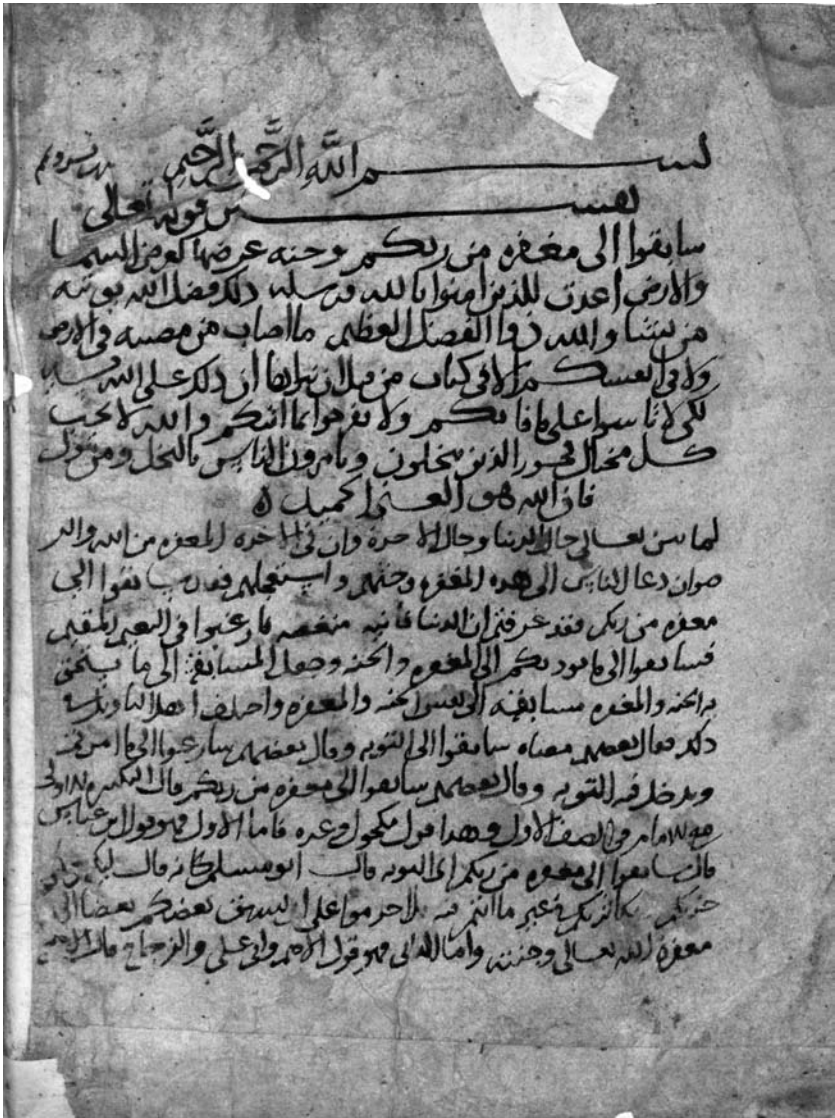 بسم الله الرحمن الرحيم
تفسير قوله تعالى
سابقوا الى مغفره من ربكم وجنه عرضها كعرض السما
والارض اعدت للذين امنوا بالله ورسله ذلك فضل الله يوتيه
من يشا والله ذوا الفضل العظيم ما اصاب من مصيبه في الارض
ولا في انفسكم الا في كتاب من قبل ان نبراها ان ذلك على الله يسير
لكي لا تاسوا على ما فاتكم ولا تفرحوا بما اتيكم والله لا يحب
كل مختال فخور الذين يبخلون ويامرون الناس بالبخل ومن يتول
فان الله هو الغني الحميد ه
لما بين تعالى حال الدنيا وحال الاخرة وان في الاخره المغفره من الله والر
ضوان دعا الناس الى هذه المغفره وحثهم واستعجلهم فقال سابقوا الى
مغفره من ربكم فقد عرفتم ان الدنيا فانيه منغصه فارغبوا في النعيم المقيم
فسابقوا الى ما يوديكم الى المغفره والجنه وجعل المسابقة الى ما يستحق
به الجنه والمغفره مسابقة الى نفس الجنه والمغفره واختلف اهل التاويل في
ذلك فقال بعضهم معناه سابقوا الى التوبه وقال بعضهم سارعوا الى ما امرتم
ويدخل فيه التوبه وقال بعضهم سابقوا الى مغفره من ربكم قال التكبيره الاولى
مع الامام في الصف الاول وهذا قول مكحول وغيره فاما الاول فهو قول ابن عباس
قال سابقوا الى مغفره من ربكم الى التوبه قال ابو مسلم كانه قال ليكن
تكاثركم في غير ما انتم فيه احرصوا على ان يسبق بعضكم بعضا الى
مغفرة الله تعالى وجنته واما الثاني فهو قول الاصم وابي علي والزجاج قال الاصم